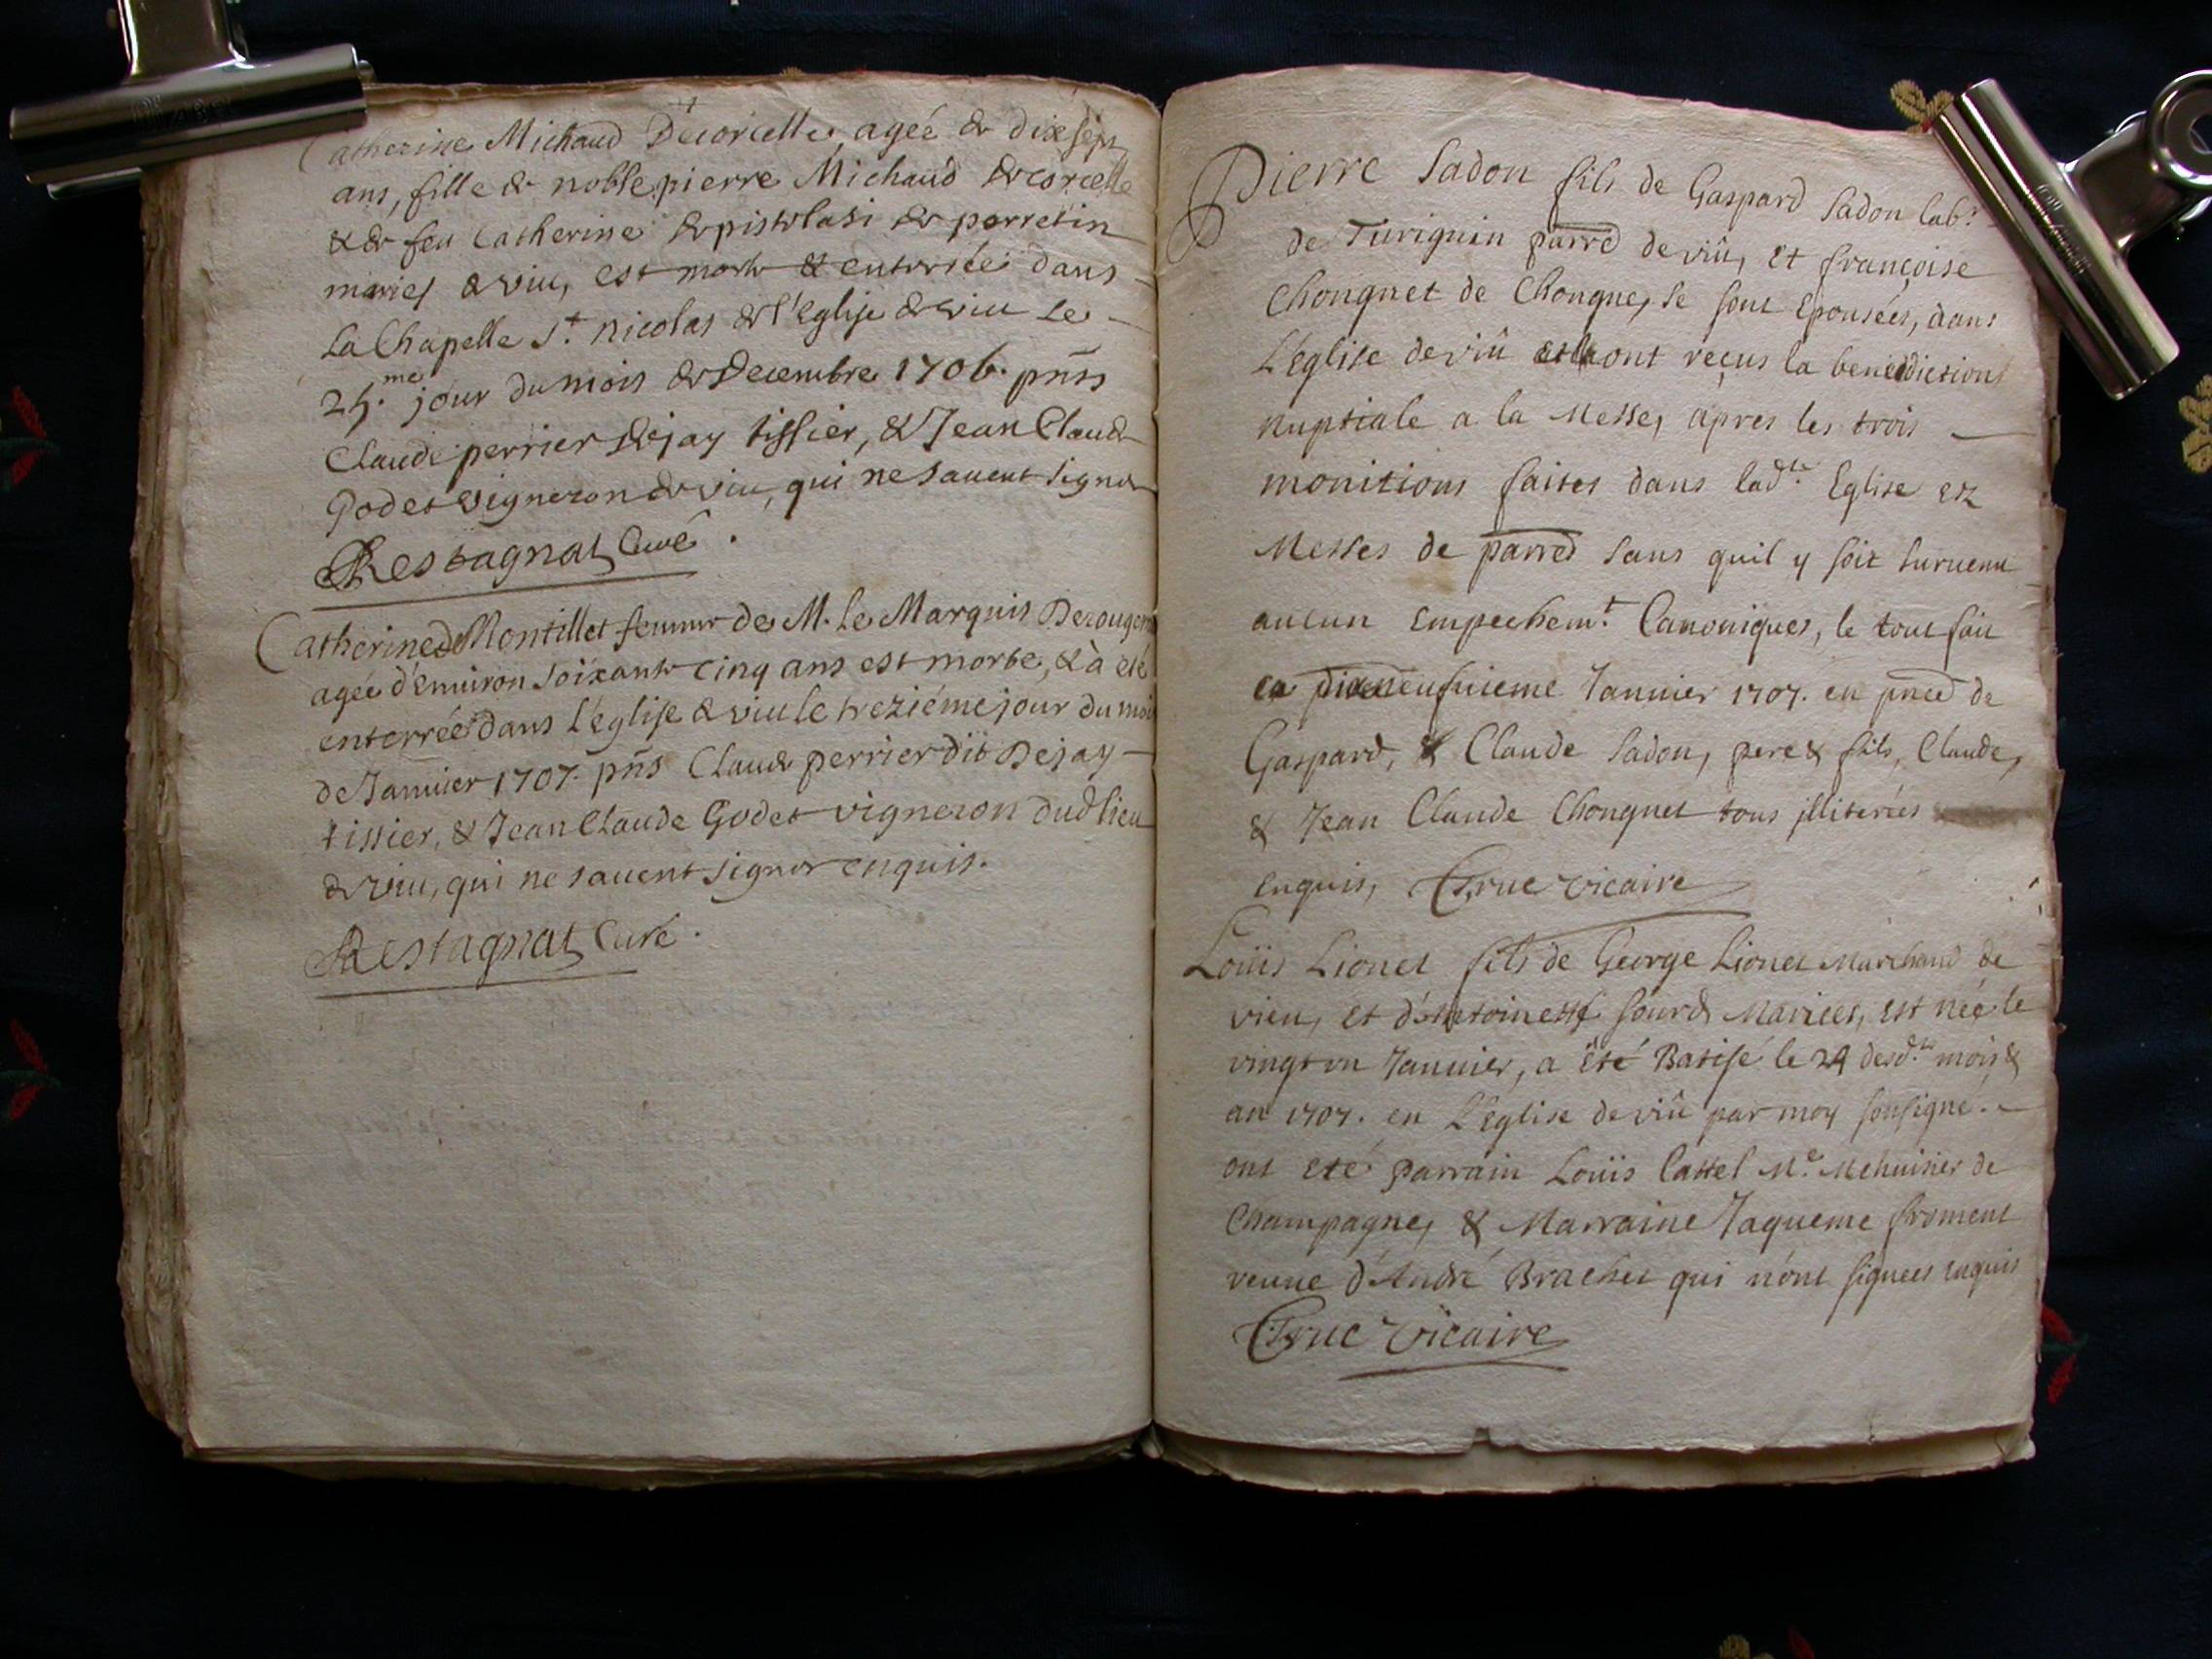 Catherine Michaud Decorcelle, agée de dixsept
ans, fille de noble pierre Michaud de corcelle
& de feu Catherine de de perretin
mariés de viu, est morte & enterrée dans
La Chapelle St. nicolas de l'Eglise de viu le
25.me jour du mois de Decembre 1706. pñts
Claude perrier dejay tissier, & Jean Claude
Godet vigneron de viu, qui ne sauent signer
Restagnat Curé.
Catherine de Montillet femme de M. le Marquis
agée d'enuiron soixante cinq ans est morte, & à eté
enterrée dans l'eglise de viu le treziéme jour du mois
de Januier 1707. pñts Claude perrier dit Dejay
tissier, & Jean Claude Godet vigneron dud lieu
de viu, qui ne sauent signer enquis.
Restagnat Curé.
Pierre Sadon fils de Gaspard Sadon labr.
de Turignin parre de viû, et françoise
Chongnet de Chongne, se sont Epousées, dans
L'eglise de viû et ont reçus la beneddictions
nuptiale a la Messe, apres les trois
monitions faites dans ladte. Eglise ez
Messes de parre sans quil y soit suruenu
aucun Empechemt. Canoniques, le tout fait
ce dixneufuieme Januier 1707. en pnce de
Gaspard, & Claude Sadon, pere & fils, Claude,
& Jean Claude Chongnet tous jlliterées
enquis, Truc vicaire
Loüis Lionet fils de George Lionet Marchand de
vieu, et d'Antoinette sourd Mariees, est née le
vingt vn Januier, a Eté Batisé le 24 desdts. mois &
an 1707. en L'Eglise de viû par moy sousigné.
ont eté parrain Loüis Cattel Me. Menuisier de
Champagne, & Marraine Jaqueme froment
veuue d'André Brachet qui n'ont signees enquis
Truc Vicaire